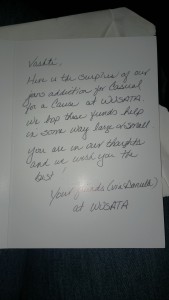 Vashti,
Here is the surplus of our
jeans addition for Casual
for a Cause at WUSATA
we hope these funds help
in some way large or small
you are in our thoughts
and we wish you the
best!
Your friends
at WUSATA